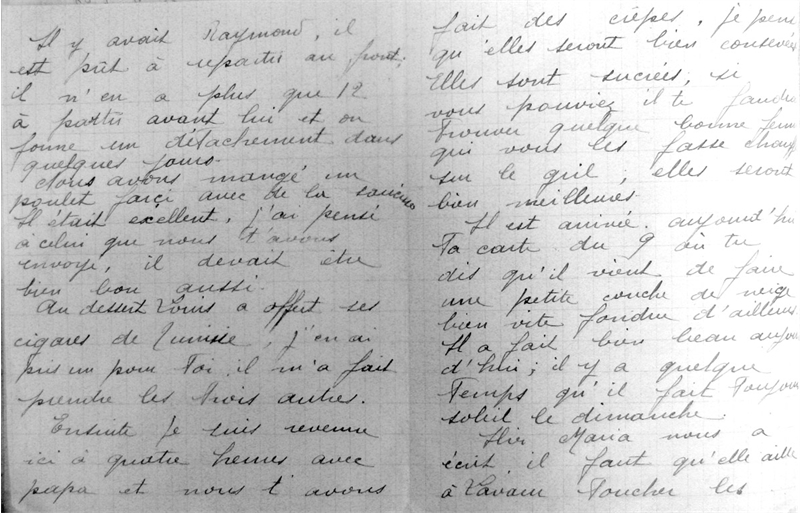 Il y avait Raymond, il
est prêt à repartir au front;
il n'en a plus que 12
à partir avant lui et on
forme un détachement dans
quelques jours.
Nous avons mangé un
poulet farçi avec de la saucisse
Il était excellent, j'ai pensé
à celui que nous t'avons
envoyé, il devait être
bien bon aussi.
Au dessert Louis a offert ses
cigares de Tunisie, j'en ai
pris un pour Toi, il m'a fait
prendre les Trois autres.
Ensuite je suis revenue
ici à quatre heures avec
papa et nous t'avons
fait des crêpes, je pens
qu'elles seront bien conservée
Elles sont sucrées, si
vous pouviez il te faudra
Trouver quelque bonne fem
qui vous les fasse chauff
sur le gril, elles seront
bien meilleures
Il est arrivé aujourd'hu
Ta carte du 9 où tu
dis qu'il vient de faire
une petite couche de neige
bien vite fondre d'ailleurs
Il a fait bien beau aujour
d'hui; il y a quelque
Temps qu'il fait Toujour
soleil le dimanche.
Hier Maria nous a
écrit, il faut qu'elle aille
à Lavaur Toucher les